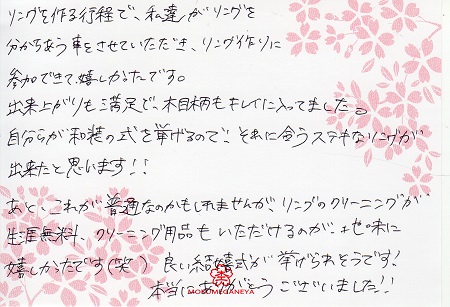 リングを作る行程で、私達がリングを
分かちあう事をさせていただき、リング作りに
参加できて嬉しかったです。
出来上がりも満足で、木目柄もキレイに入ってました。
自分らが和装の式を挙げるので、それに合うステキなリングが
出来たと思います!!
あと、これが普通なのかもしれませんが、リングのクリーニングが
生涯無料、クリーニング用品もいただけるのが、地味に
嬉しかったです(笑) 良い結婚式が挙げられそうです!
本当にありがとうございました!!
MOSUMEGANEYA